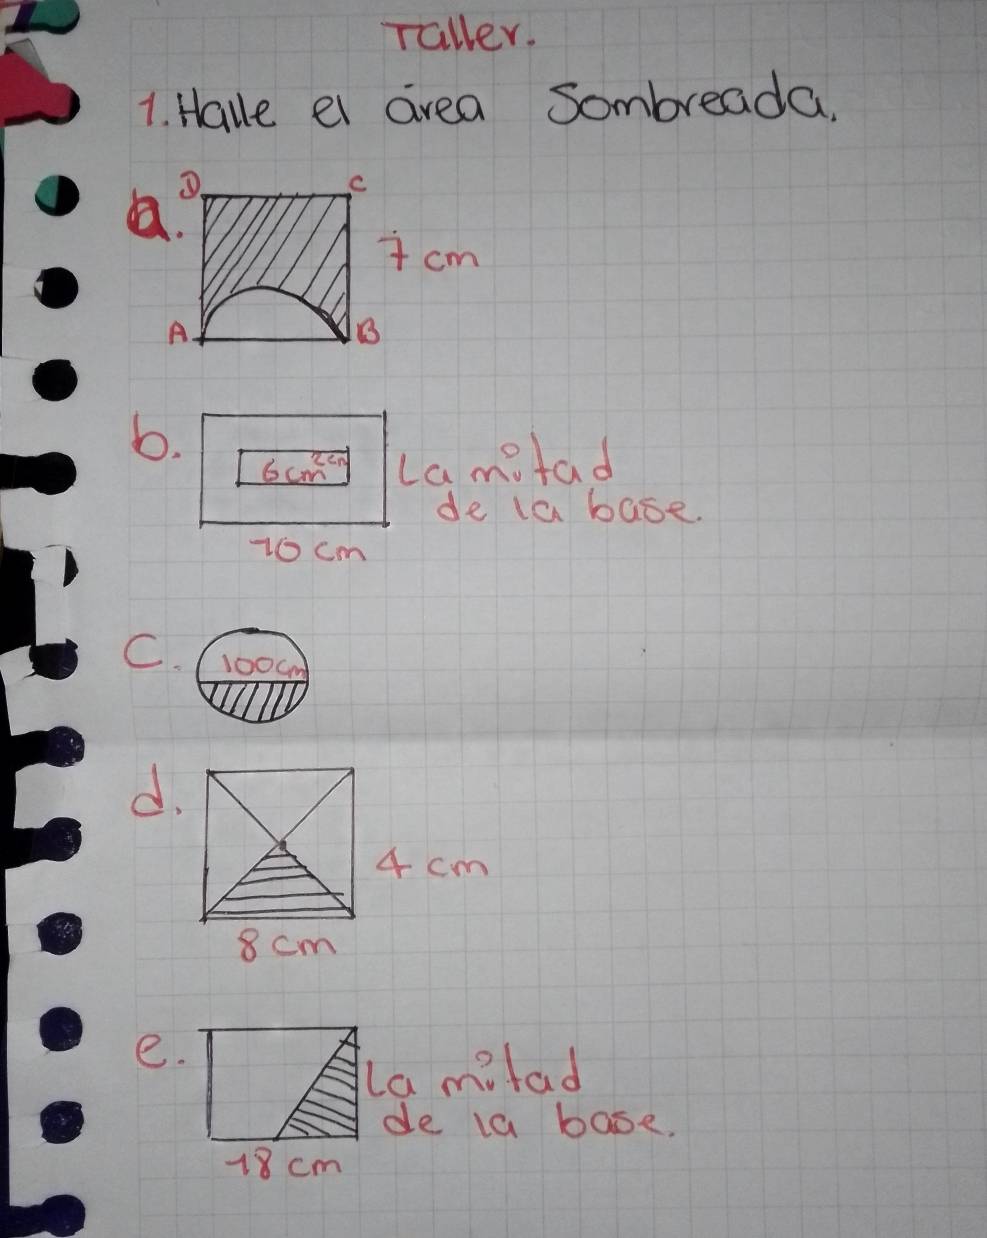 Taller.
1. Halle el área Sombreada.
a.
D
C
7 cm
A
B
b.
6cm 2cm
La mitad
de la base.
10 cm
C.
100cm
d.
4 cm
8 cm
e.
La mitad
de la base.
18 cm